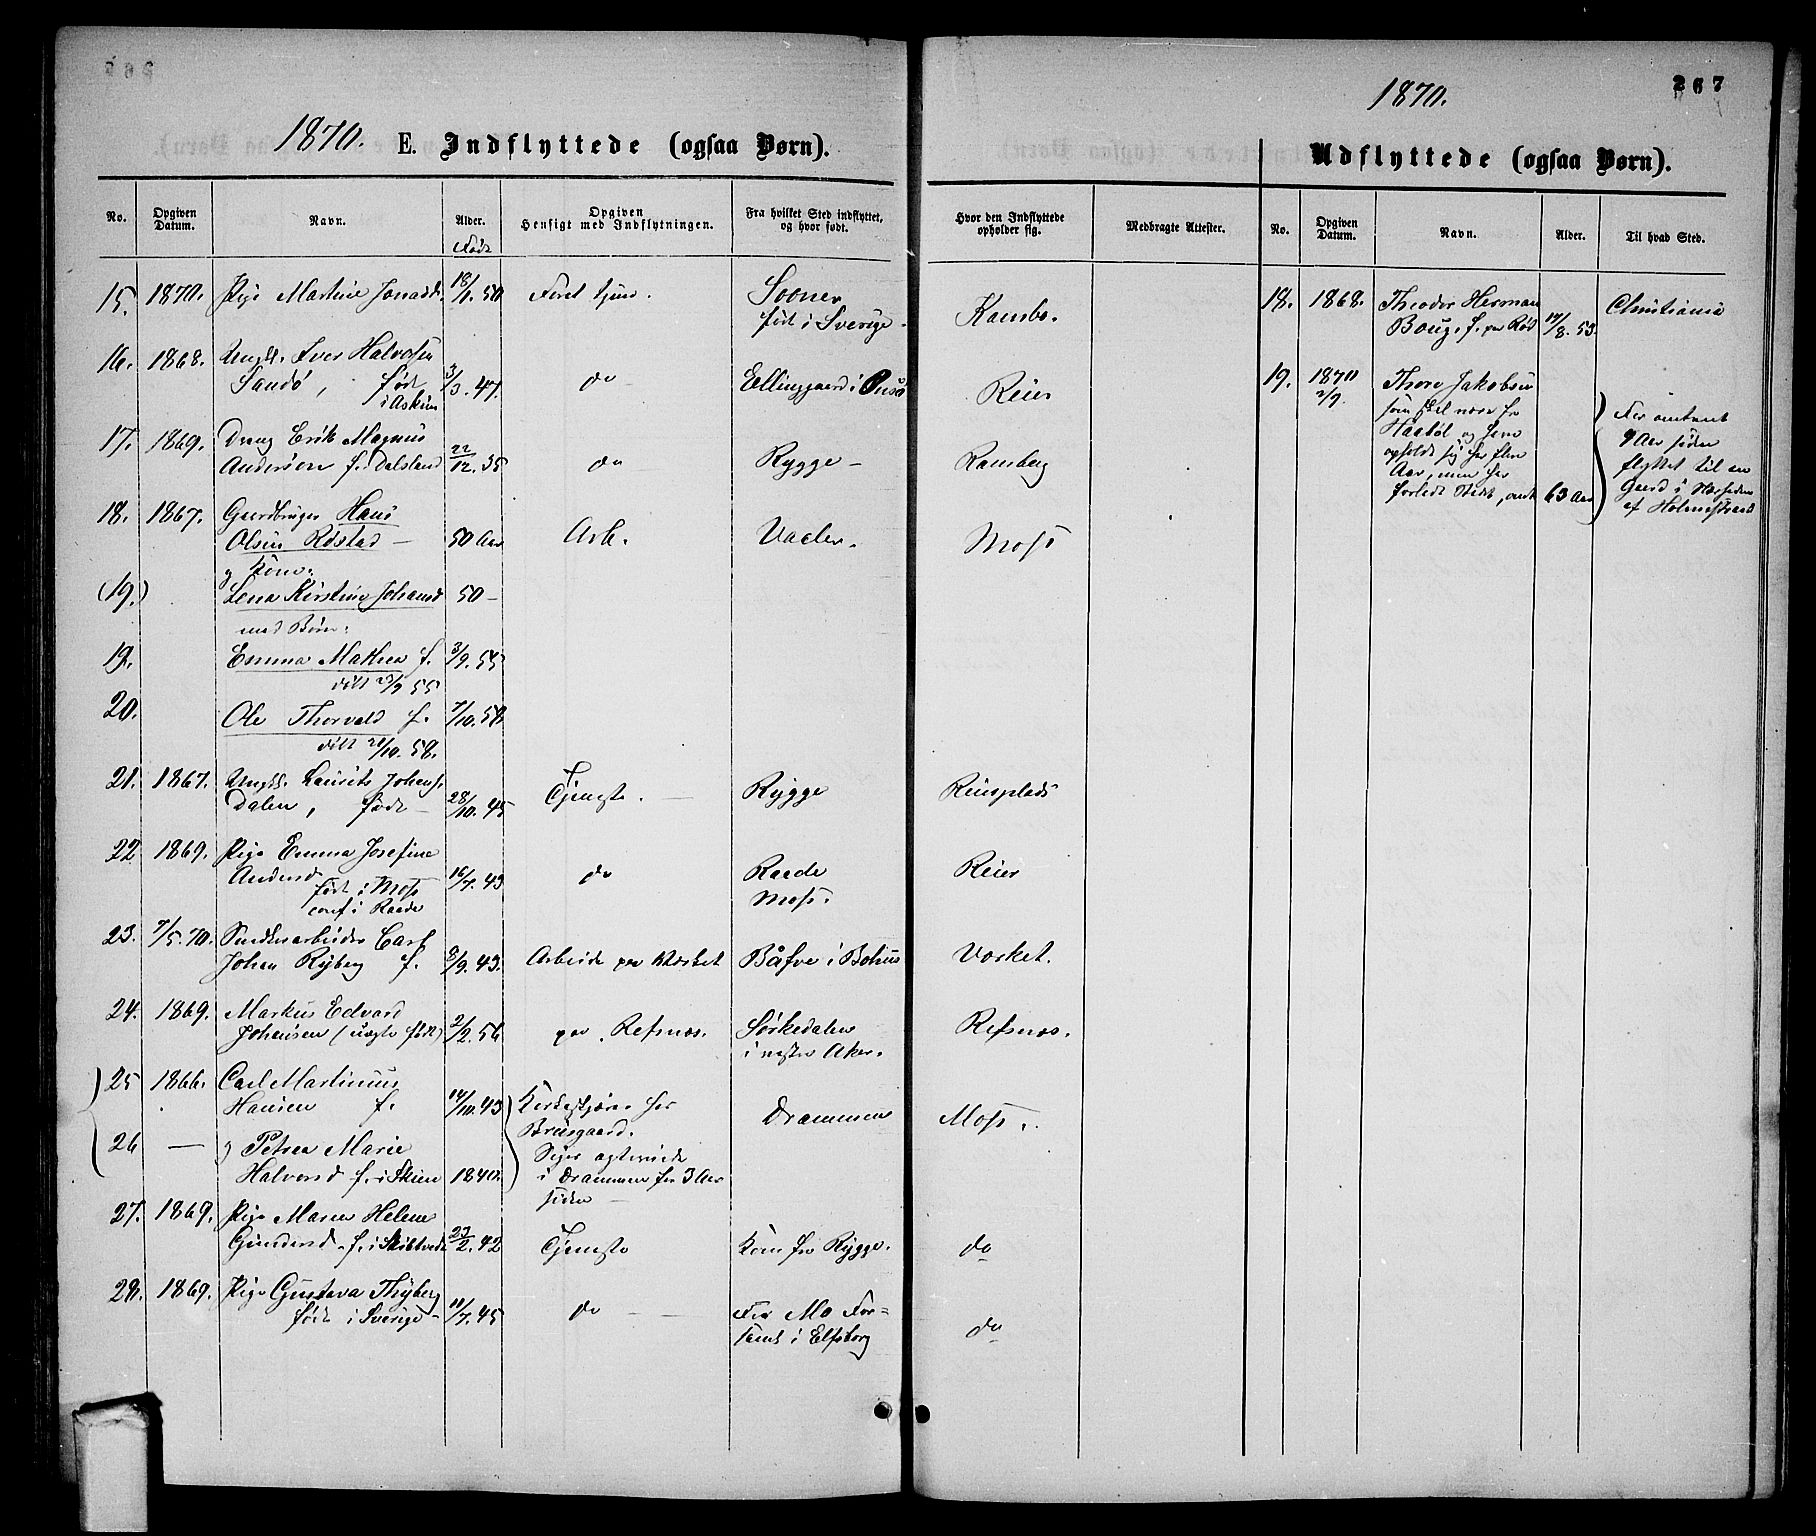 267
1870.
1870. E. Indflyttede (ogsaa Børn).
Udflyttede (ogsaa Børn).
No. Opgiven Datum. Navn. Alder. Opgiven Hensigt med Indflytningen. Fra hvilket Sted indflyttet, og hvor født. Hvor den Indflyttede opholder sig. Medbragte Attester. No. Opgiven Datum. Navn. Alder. Til hvad Sted.
Født
15. 1870. Pige Martine Jonasd. 18/1. 50 Sooner
født i Sverige. Kambo.
16. 1868. Ungk. Iver Halvorsen
Sandø, født 3/3. 47. do Ellinggaard i Onsø Reier
i Askim
17. 1869. Dreng Erik Magnus
Andersen f. Dalsland 22/12. 35 do Rygge - Ramberg
18. 1867. Gaardbruger Hans
Olsen Røstad - 50 Aar Arb. Vaaler. Moss
g Kone.
(19.) Lena Kirstine Johansd 50 -
med Børn:
19. Emma Mathea f. 3/9. 55
døbt 23/9 55
20. Ole Thorvald f. 7/10. 58.
døbt 28/10. 58.
21. 1867. Ungk. Laurits Johans.
Dalen, født - 28/10. 45 Tjeneste. - Rygge Reierplads
22 1869. Pige Emma Josefine
Andersd 16/7. 43 do Raade Reier
født i Moss Moss.
conf i Raade
23. 7/5. 70. Snedkerarbeider Carl
Johan Ryberg f. 9/9. 43. Arbeide paa Værket Båfve i Bohus Værket.
24. 1869. Markus Edvard
Johansen (uægte født) 2/2. 56 paa Refsnæs. Sørkedalen Refsnæs.
i vestre Aker.
25 1866. Carl Martinius
Hansen f. 14/10. 43 Kirkeskjøre. her
Briisgaard. Drammen Moss.
26 - g Petrea Marie
Halvorsd f. i Skien 1840. Siger ægteviede
i Drammen for 3 Aar
siden -
27. 1869. Pige Maren Helene
Gundersd. f. i Skibtvedt 23/2. 42 Tjeneste Kom fra Rygge. do
28. 1869. Pige Gustava Thyberg
født i Sverige - 10/7. 45 do - Fra Mo For=
samt i Elfsborg do
18. 1868. Theodor Herman
Boug. f. paa Rød 14/8. 53 Christiania
19. 1870
2/9. Thore Jakobsen
som skal være fr
Haabøl og have
opholdt sig her flere
Aar, men har
forladt Stedet, omt 63 Aar
For omtrent
9 Aar siden
flyttet til en
Gaard i Nærheden
af Holmestrand